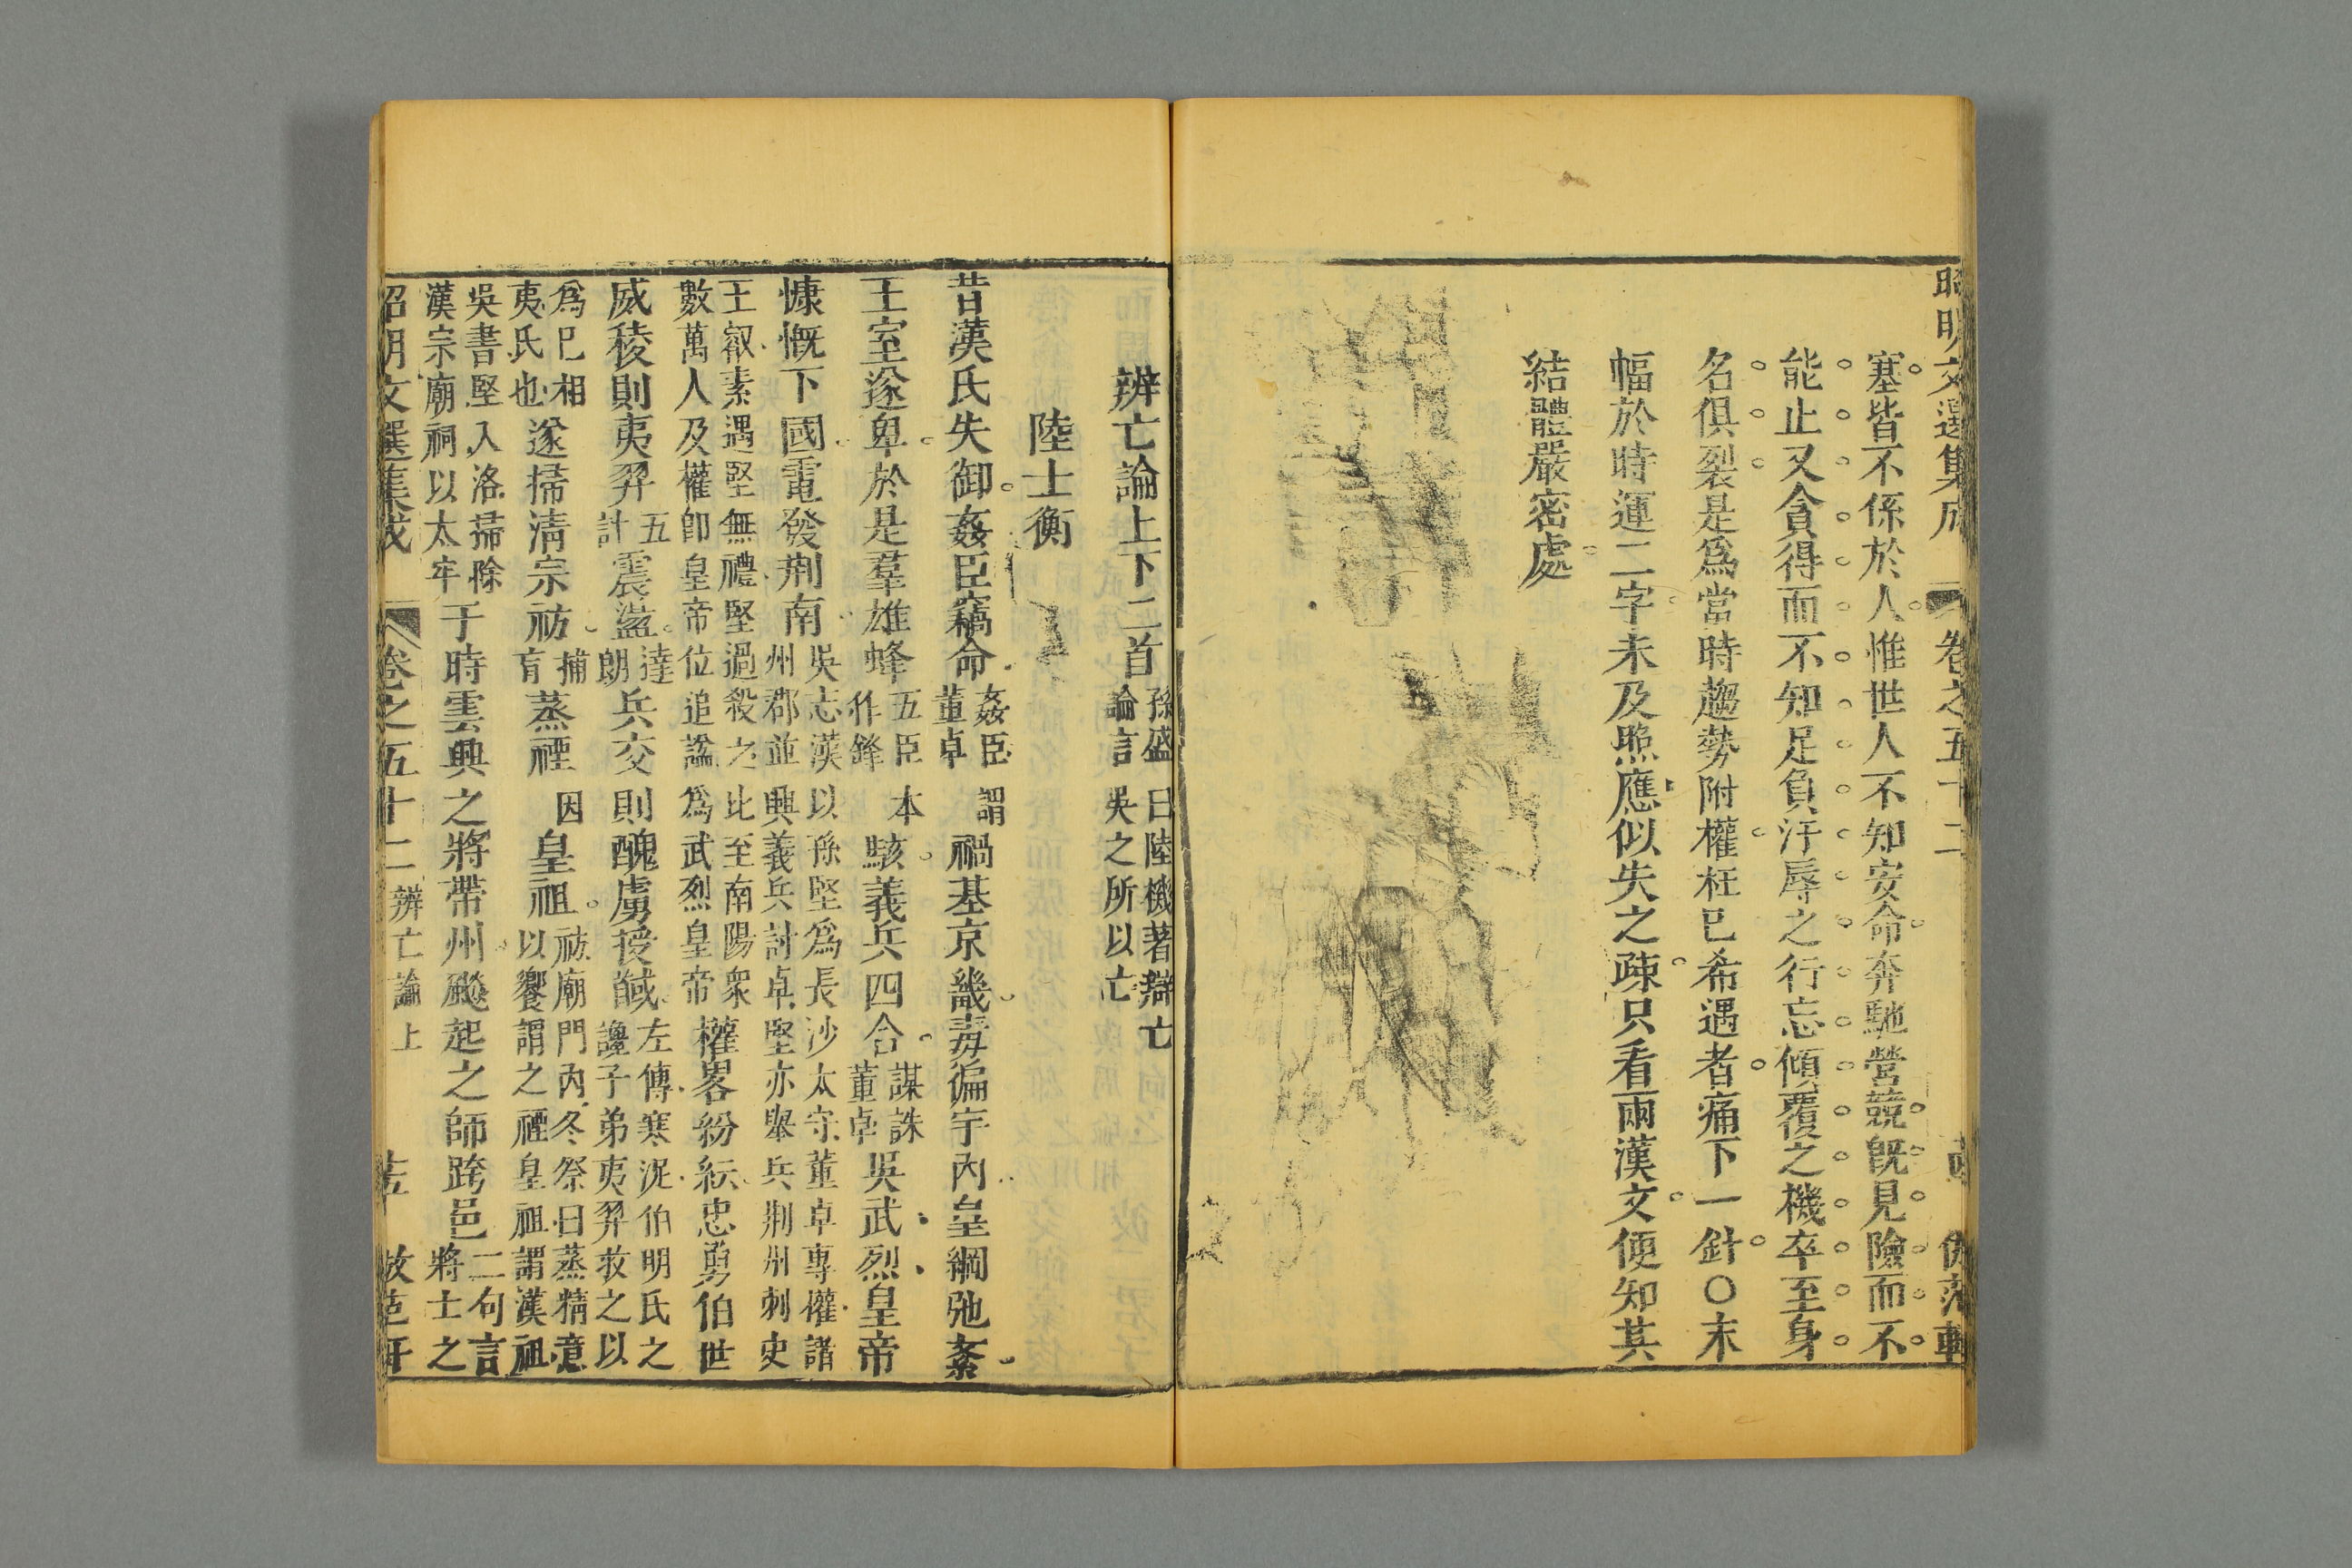 昭明文選集成 卷之五十二
塞皆不係於人惟世人不知安命奔馳營競既見險而不
能止又貪得而不知足負汙辱之行忘傾覆之機卒至身
名俱裂是爲當時趨勢附權枉己希遇者痛下一針○末
幅於時運二字未及照應似失之疎只看兩漢文便知其
結體嚴密處
辨亡論上下二首 孫盛曰陸機著辯亡論言吳之所以亡
陸士衡
昔漢氏失御姦臣竊命 姦臣謂董卓 禍基京畿毒徧宇內皇綱弛紊
王室遂卑於是羣雄蜂 五臣本作鋒 駭義兵四合 謀誅董卓 吳武烈皇帝
慷慨下國電發荆南 吳志漢以孫堅爲長沙太守董卓專權諸州郡並興義兵討卓堅亦舉兵荆州刺史
王叡素遇堅無禮堅過殺之比至南陽衆數萬人及權卽皇帝位追諡爲武烈皇帝 權畧紛紜忠勇伯世
威稜則夷羿 五計 震盪 達朗 兵交則醜虜授馘 左傳寒浞伯明氏之讒子弟夷羿收之以
爲己相夷氏也 遂掃清宗祊 捕肓 蒸禋 因 皇祖 祊廟門內冬祭曰蒸精意以饗謂之禋皇祖謂漢祖
吳書堅入洛掃除漢宗廟祠以太牢 于時雲興之將帶州飈起之師跨邑 二句言將士之
昭明文選集成 卷之五十二 辨亡論上